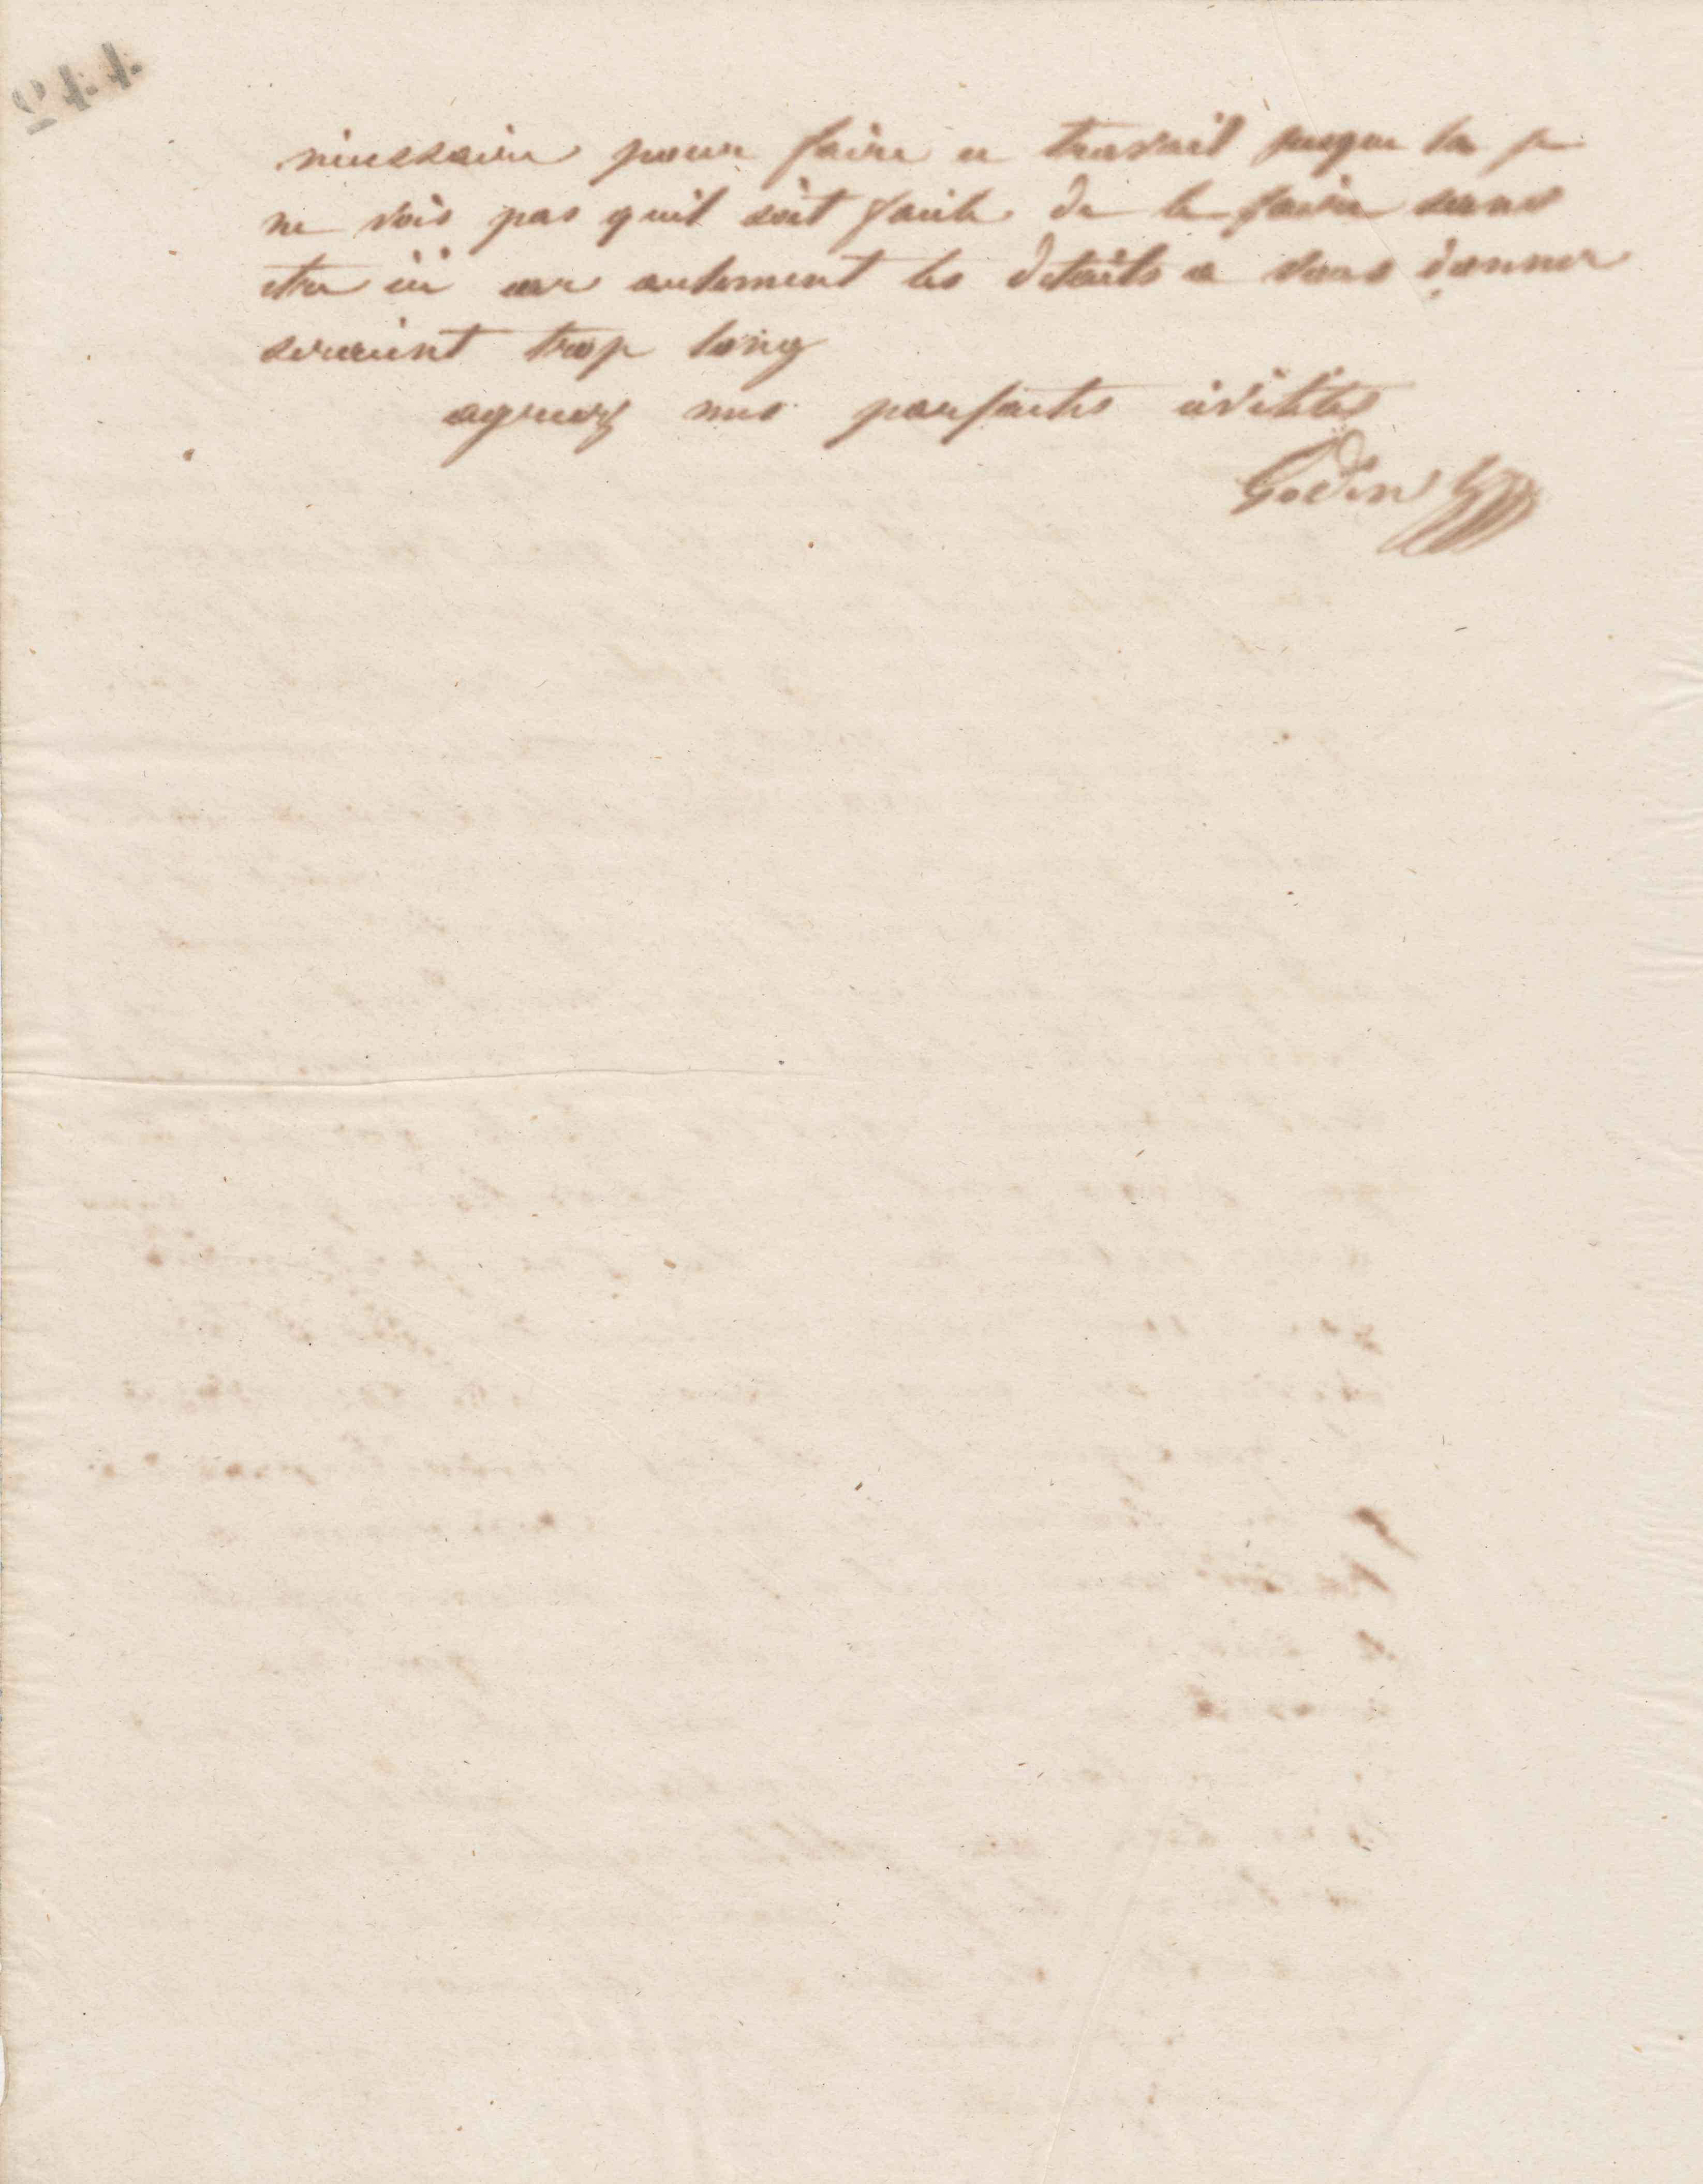 244
nécessaire pour faire ce travail jusque la je
ne vois pas quil soit facile de le faire sans
etre ici car autrement les details a vous donner
seraient trop long
agreez mes parfaites civilités
Godin